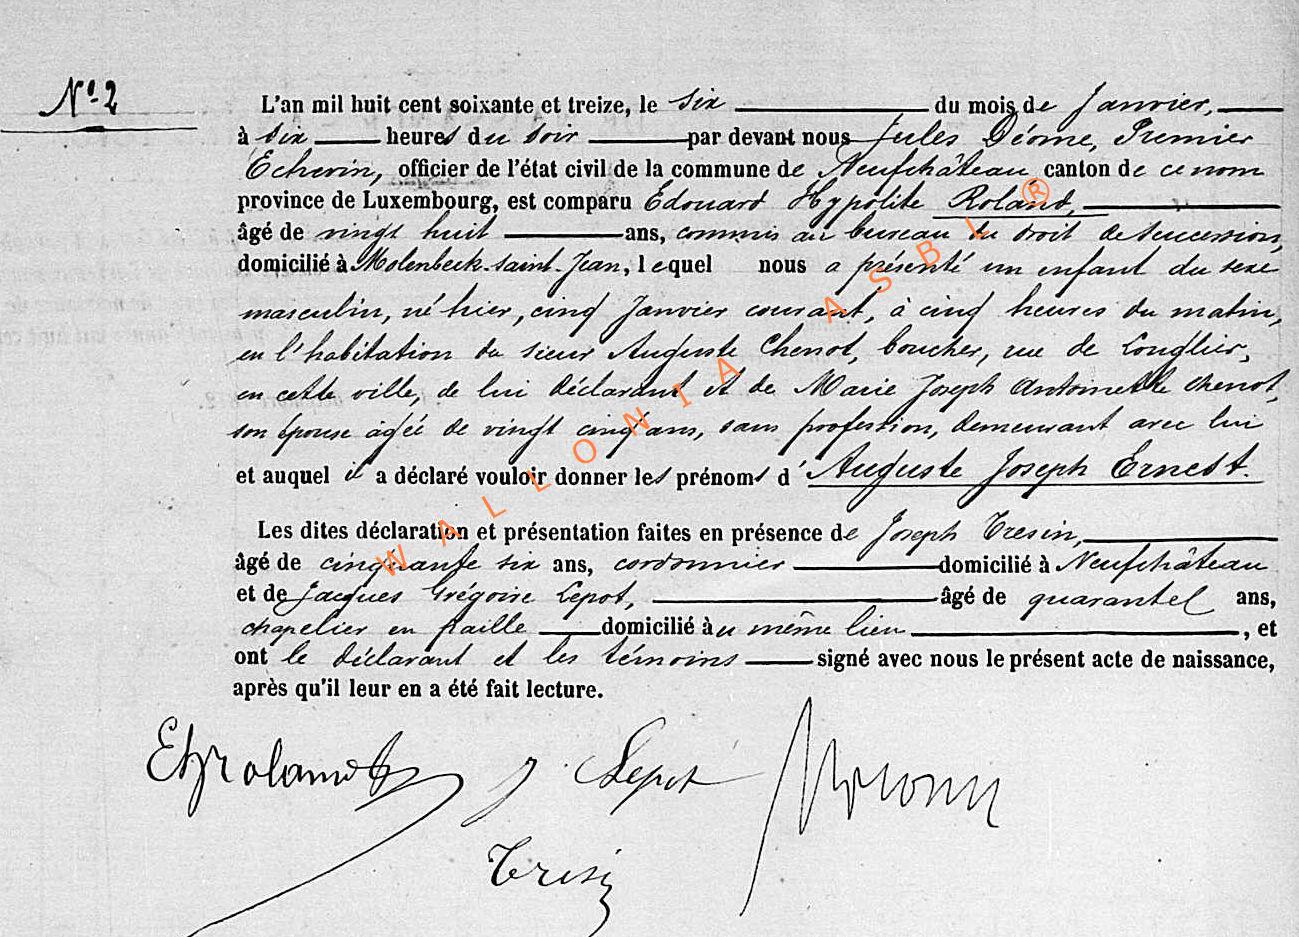 Nº 2
L'an mil huit cent soixante et treize, le six du mois de Janvier,
à six heures du soir par devant nous Jules Déome, Premier
Echevin, officier de l'état civil de la commune de Neufchâteau canton de ce nom
province de Luxembourg, est comparu Edouard Hypolite Roland,
âgé de vingt huit ans, commis au bureau du droit de succession,
domicilié à Molenbeek-Saint-Jean, lequel nous a présenté un enfant du sexe
masculin, né hier, cinq Janvier courant, à cinq heures du matin,
en l'habitation du sieur Auguste Chenot, boucher, rue de Longlier,
en cette ville, de lui déclarant et de Marie Joseph Antoinette Chenot,
son épouse âgée de vingt cinq ans, sans profession, demeurant avec lui
et auquel il a déclaré vouloir donner les prénoms d'Auguste Joseph Ernest.
Les dites déclaration et présentation faites en présence de Joseph Tresin,
âgé de cinquante six ans, cordonnier domicilié à Neufchâteau
et de Jacques Grégoire Lepot, âgé de quarante ans,
chapelier en paille domicilié au même lieu, et
ont le déclarant et les témoins signé avec nous le présent acte de naissance,
après qu'il leur en a été fait lecture.
EHyroland J Lepot
Tresin
WALLONIA ASBL ®